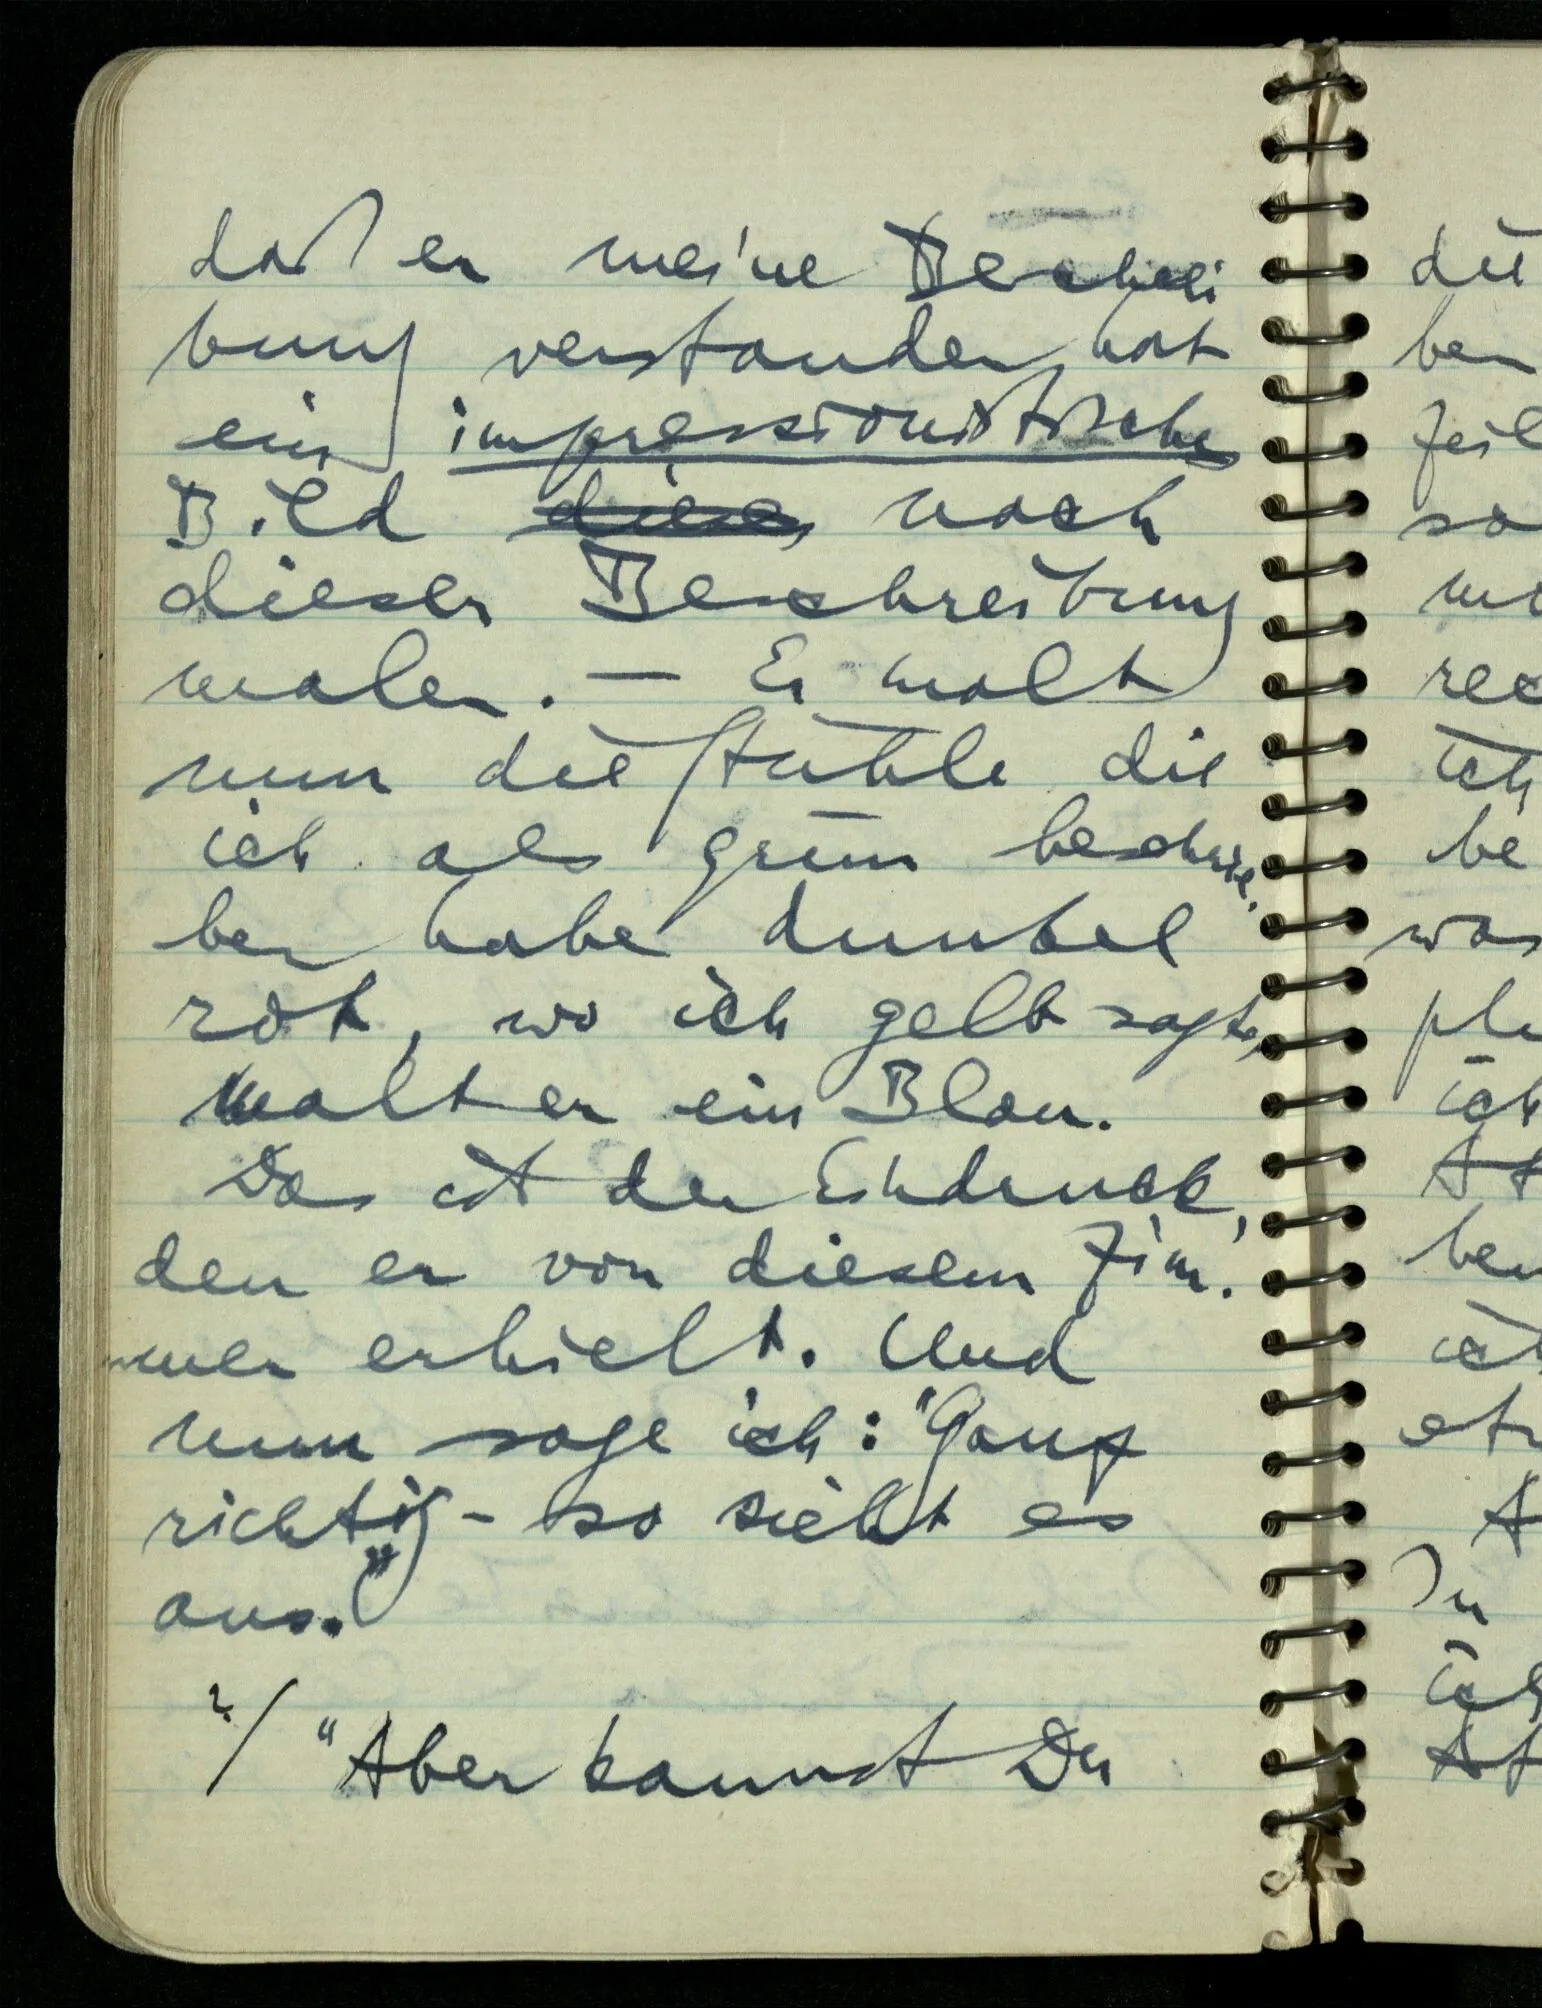 daß er meine Beschrei
bung verstanden hat
ein impressionistisches
Bild dieses nach
dieser Beschreibung
malen. — Er malt
nun die Stühle die
ich als grün beschrie-
ben habe dunkel
rot, wo ich gelb sagte,
malt er ein Blau.
Das ist der Eindruck,
den er von diesem Zim-
mer erhielt. Und
nun sage ich: "Ganz
richtig - so sieht es
aus."
?/ "Aber kannst Du
die
ben
so
rec
ich
be
was
ich
ben
In